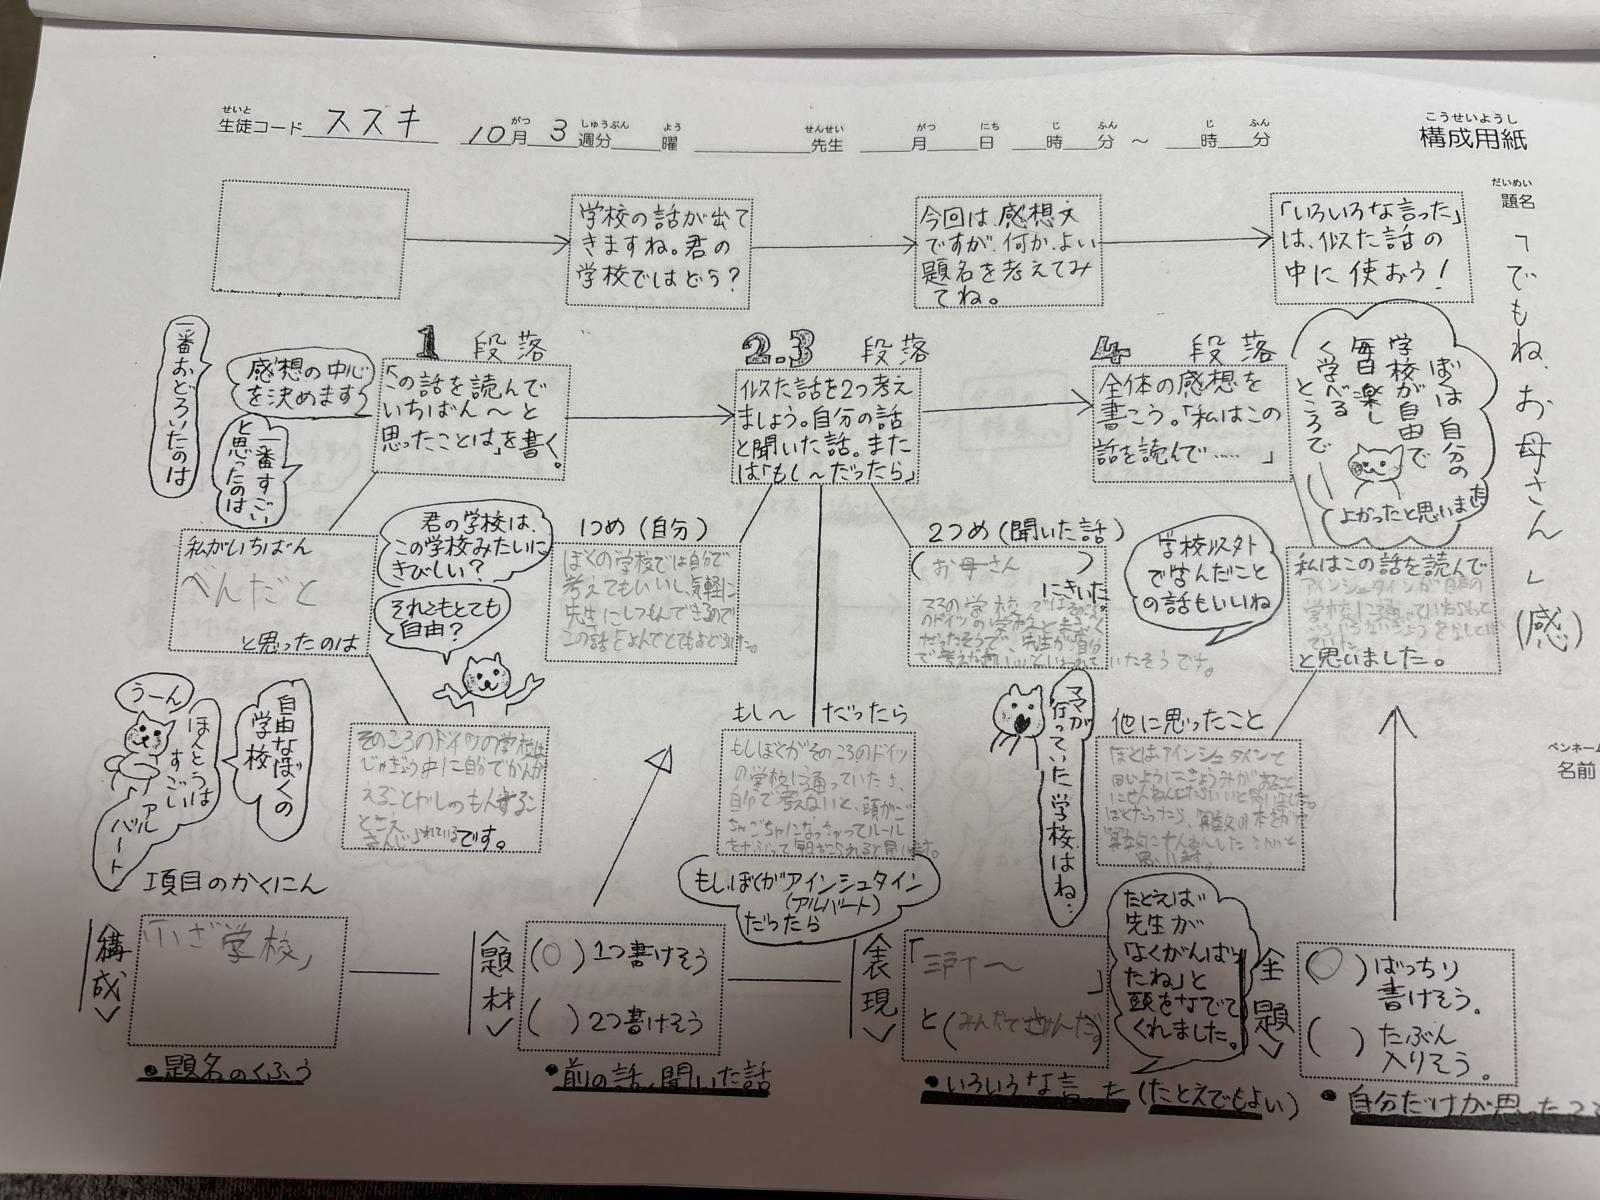 せいと
生徒コード ススキ 10月 3週分 曜 先生 月 日 時 分 ～ 時 分
がつ しゅうぶん よう せんせい がつ にち じ ふん じ ふん
こうせいようし
構成用紙
だいめい
題名
「でもね、お母さん」(感)
ペンネーム
名前
学校の話が出て
きますね。君の
学校ではどう？
今回は、感想文
ですが、何か、よい
題名を考えてみ
てね。
「いろいろな言った」
は、似た話の
中に使おう！
1 段落
2.3 段落
4 段落
一番おどろいたのは
感想の中心
を決めます
一番すごい
と思ったのは
「この話を読んで
いちばん～と
思ったことは」を書く。
似た話を2つ考え
ましょう。自分の話
と聞いた話。また
は「もし～だったら」
全体の感想を
書こう。「私はこの
話を読んで……　」
ぼくは自分の
学校が自由で
毎日楽し
く学べる
ところで
よかったと思いました
私がいちばん
へんだと
と思ったのは
君の学校は、
この学校みたいに
きびしい？
それともとても
自由？
1つめ(自分)
ぼくの学校では自分で
考えてもいいし、気軽に
先生にしつもんできるので
この話をよんでとてもおどろいた。
2つめ(聞いた話)
(お母さん)
にきいた。
ママの学校では
のドイツの学校と
だったそうで、先生が
いたそうです。
学校以外
で学んだこと
の話もいいね
私はこの話を読んで
アインシュタインが
学校に通っていたら
と思いました。
うーん
ほんとうは
すごい
アルバート
自由なぼくの
学校
そのころのドイツの学校は
じゅぎょう中に自分でかんが
えることが
です。
もし～だったら
もしぼくがそのころのドイツ
の学校に通っていたら、
自分で考えないと、頭がご
ちゃごちゃになっちゃってルール
をやぶって
もしぼくがアインシュタイン
(アルバート)
だったら
ママが
行っていた学校はね…
他に思ったこと
ぼくはアインシュタインと
同じようにきょうみがあること
項目のかくにん
<構成>
「いざ学校」
●題名のくふう
<題材>
(○)1つ書けそう
(　)2つ書けそう
●前の話、聞いた話
<表現>
「　」
と(　)
たとえば
先生が
「よくがんばっ
たね」と
頭をなでて
くれました。
●いろいろな言った(たとえでもよい)
<主題>
(○)ばっちり
書けそう。
(　)たぶん
入りそう。
●自分だけが思ったこと